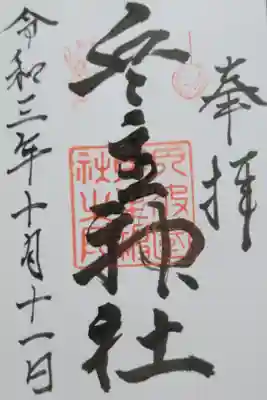 奉拝
兵主神社
令和三年十月十一日